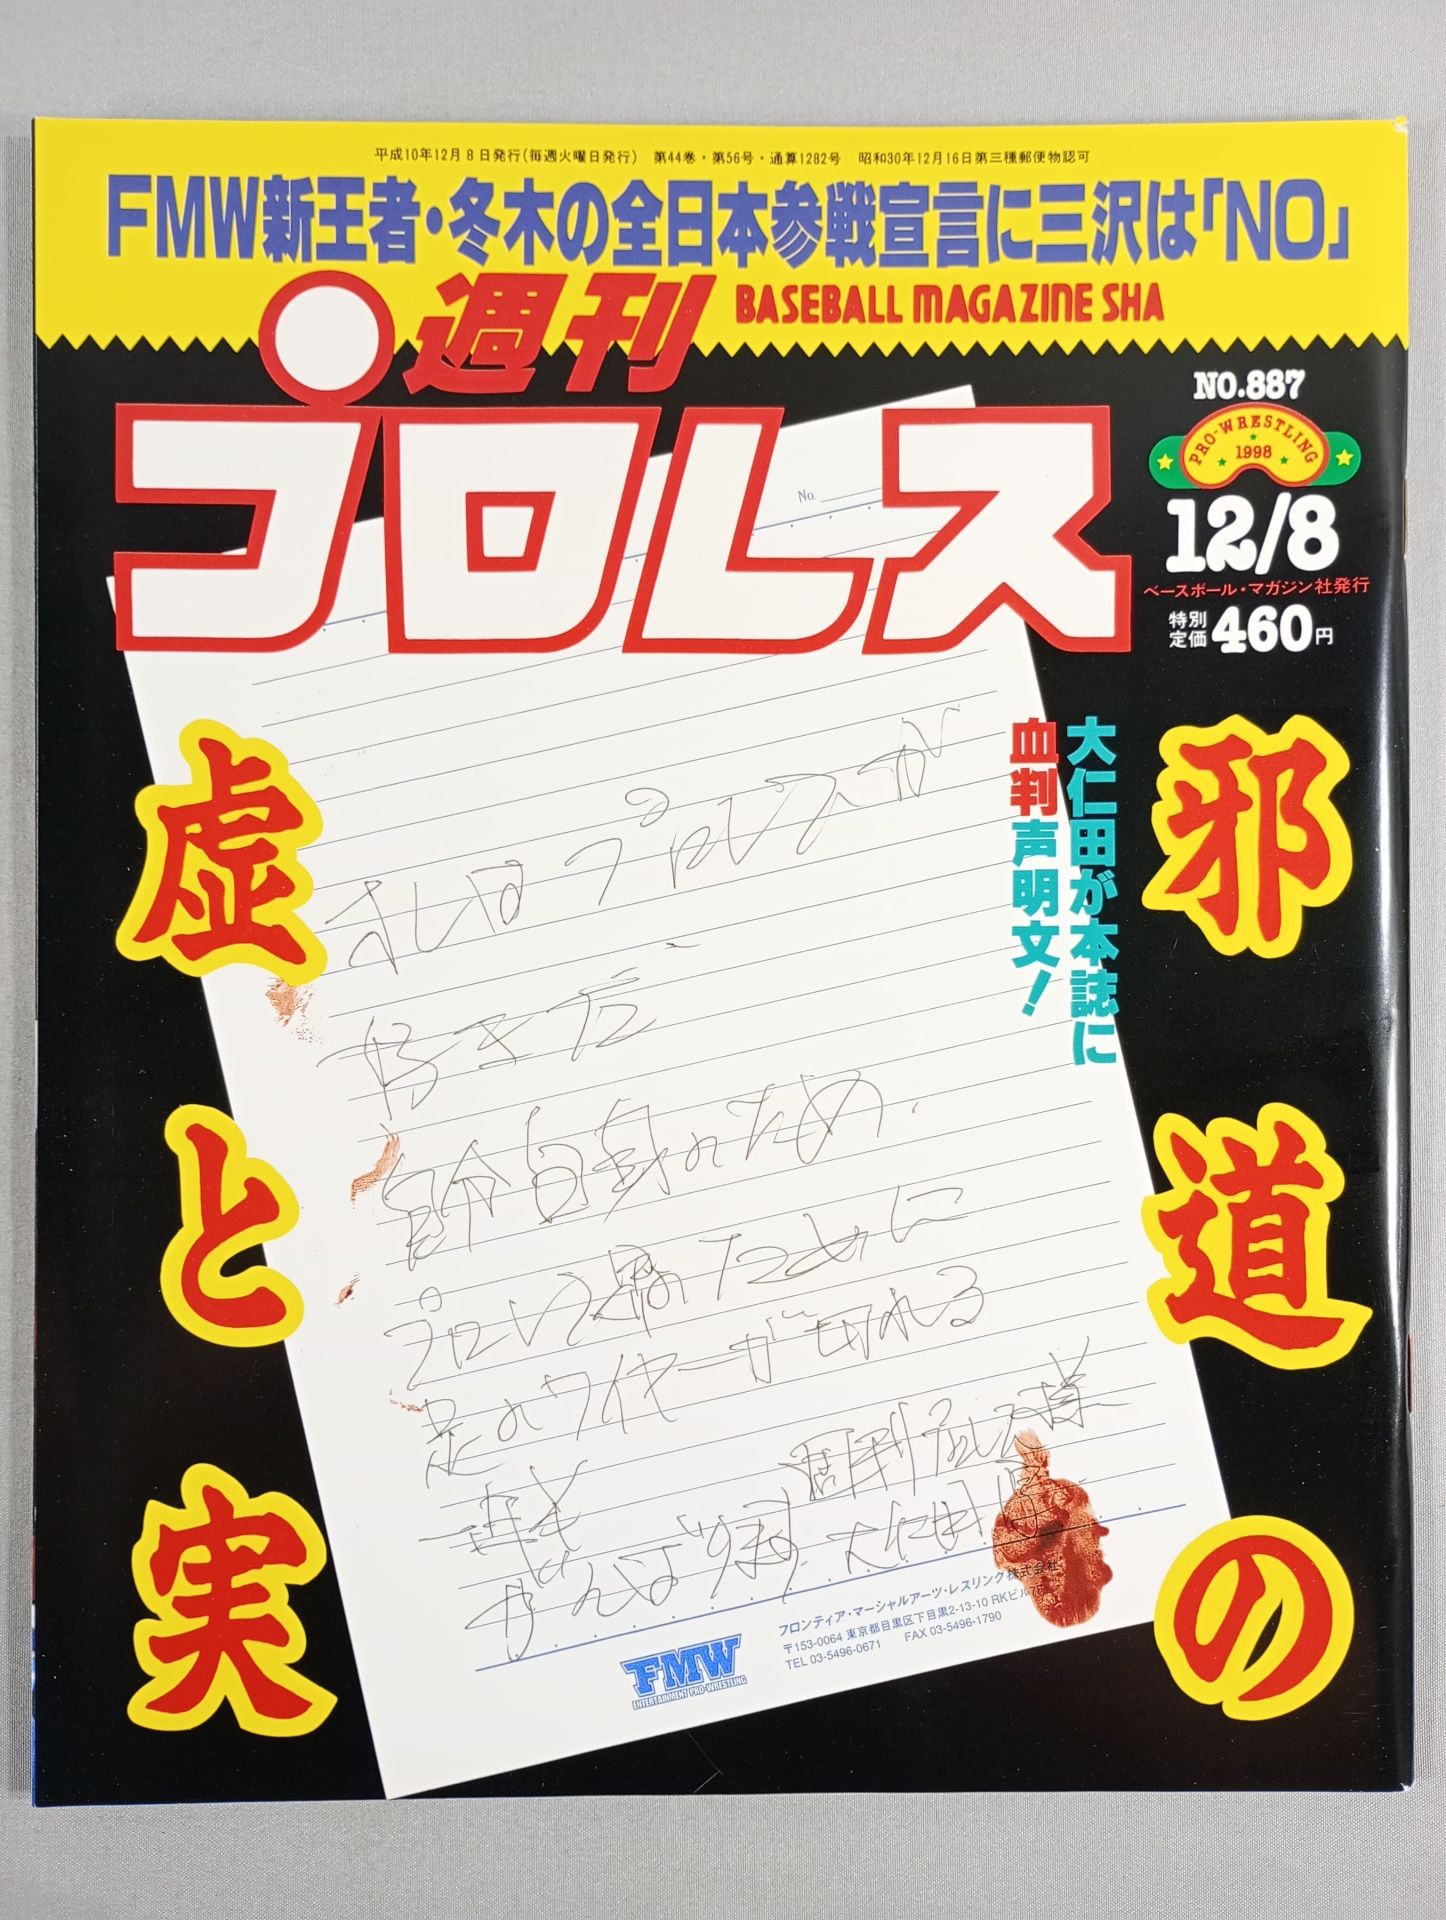 平成10年12月8日発行(毎週火曜日発行) 第44巻・第56号・通算1282号 昭和30年12月16日第三種郵便物認可
FMW新王者・冬木の全日本参戦宣言に三沢は「NO」
週刊
BASEBALL MAGAZINE SHA
プロレス
NO.887
PRO-WRESTLING
1998
12/8
ベースボール・マガジン社発行
特別
定価460円
No.
邪道の
虚と実
大仁田が本誌に
血判声明文!
オレはプロレスが
好きだ
自分自身のため.
プロレス界のために
足のワイヤーが切れる
週刊プロレス様
大仁田厚
フロンティア・マーシャルアーツ・レスリング株式会社
〒153-0064 東京都目黒区下目黒2-13-10 RKビル
TEL 03-5496-0671 FAX 03-5496-1790
FMW
ENTERTAINMENT PRO-WRESTLING